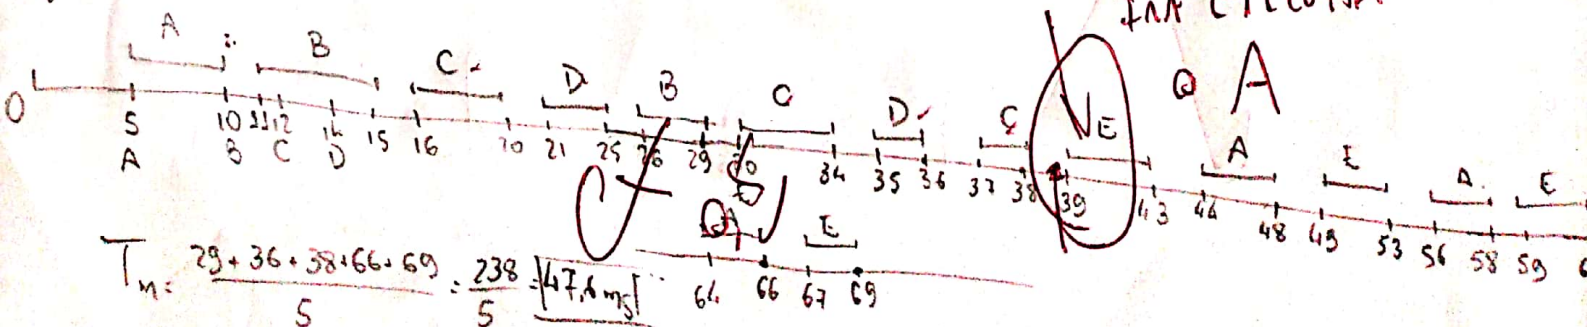 A
A B C D B C D C E A E A E
0 5 10 11 12 14 15 16 20 21 25 26 29 30 34 35 36 37 38 39 43 44 48 49 53 56 58 59
A B C D
E
Tm = 29+36+38+66+69 / 5 = 238 / 5 = 47,6 ms
64 66 67 69